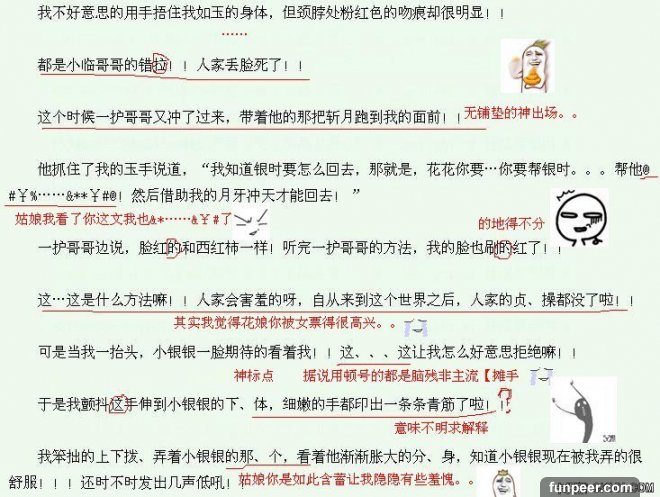 我不好意思的用手捂住我如玉的身体，但颈脖处粉红色的吻痕却很明显！！
……
都是小临哥哥的错拉！！人家丢脸死了！！
这个时候一护哥哥又冲了过来，带着他的那把斩月跑到我的面前！！
无铺垫的神出场。。
他抓住了我的玉手说道，“我知道银时要怎么回去，那就是，花花你要…你要帮银时。。。帮他@
#￥%……&**￥#@！然后借助我的月牙冲天才能回去！”
姑娘我看了你这文我也&*……&￥#了
的地得不分
一护哥哥边说，脸红的和西红柿一样！听完一护哥哥的方法，我的脸也刷的红了！！
这…这是什么方法嘛！！人家会害羞的呀，自从来到这个世界之后，人家的贞、操都没了啦！！
其实我觉得花娘你被女票得很高兴。。
可是当我一抬头，小银银一脸期待的看着我！！这、、、这让我怎么好意思拒绝嘛！！
神标点 据说用顿号的都是脑残非主流【摊手
于是我颤抖这手伸到小银银的下、体，细嫩的手都印出一条条青筋了啦！！
?
意味不明求解释
我笨拙的上下拨、弄着小银银的那、个，看着他渐渐胀大的分、身，知道小银银现在被我弄的很
舒服！！！还时不时发出几声低吼！！
姑娘你是如此含蓄让我隐隐有些羞愧。。
funpeer.com